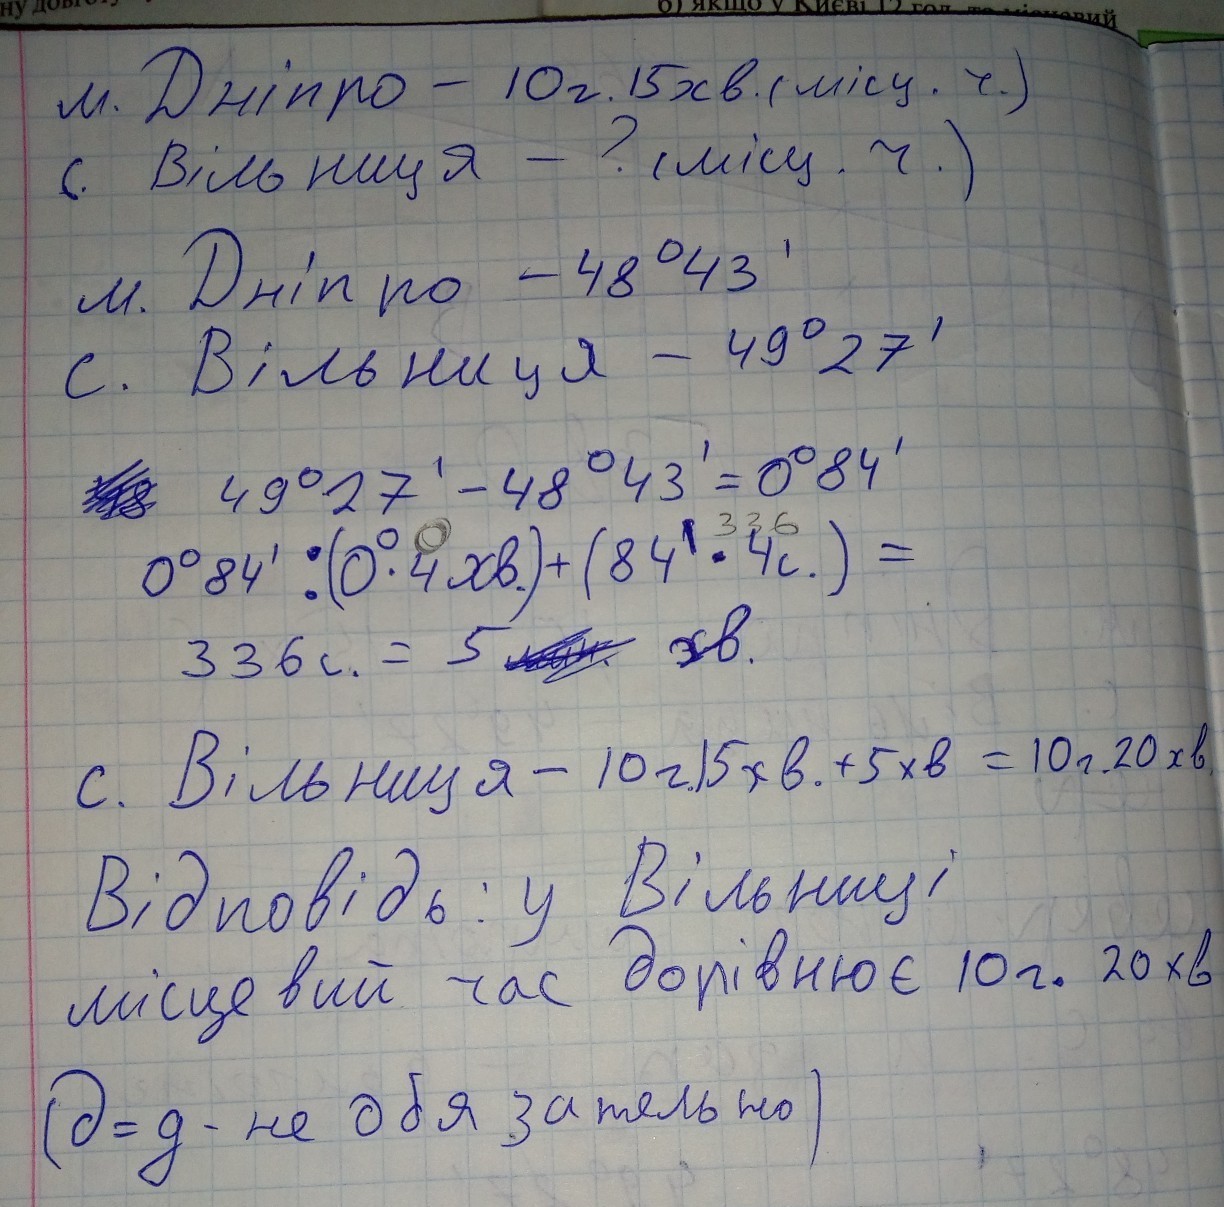 б) якщо у Києві 12 год
м. Дніпро - 10г.15хв.(місц. ч.)
с. Вільниця - ? (місц. ч.)
м. Дніпро - 48°43'
с. Вільниця - 49°27'
49°27' - 48°43' = 0°84'
0
336
0°84' : (0°·4хв.)+(84'·4с.) =
336с. = 5 хв.
с. Вільниця - 10г.15хв.+5хв = 10г.20хв.
Відповідь: у Вільниці
місцевий час дорівнює 10г. 20хв
(д=g - не обязательно)